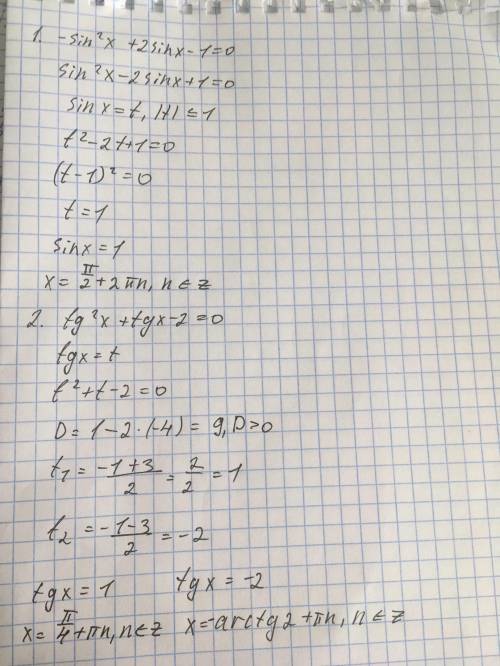 1. -sin²x +2sinx-1=0
sin²x-2sinx+1=0
sinx=t, |t|≤1
t²-2t+1=0
(t-1)²=0
t=1
sinx=1
x= π/2 +2πn, n∈z
2. tg²x+tgx-2=0
tgx=t
t²+t-2=0
D=1-2·(-4)= 9, D>0
t₁= (-1+3)/2 = 2/2 =1
t₂ = (-1-3)/2 = -2
tgx=1 tgx=-2
x= π/4 +πn, n∈z x=-arctg2+πn, n∈z